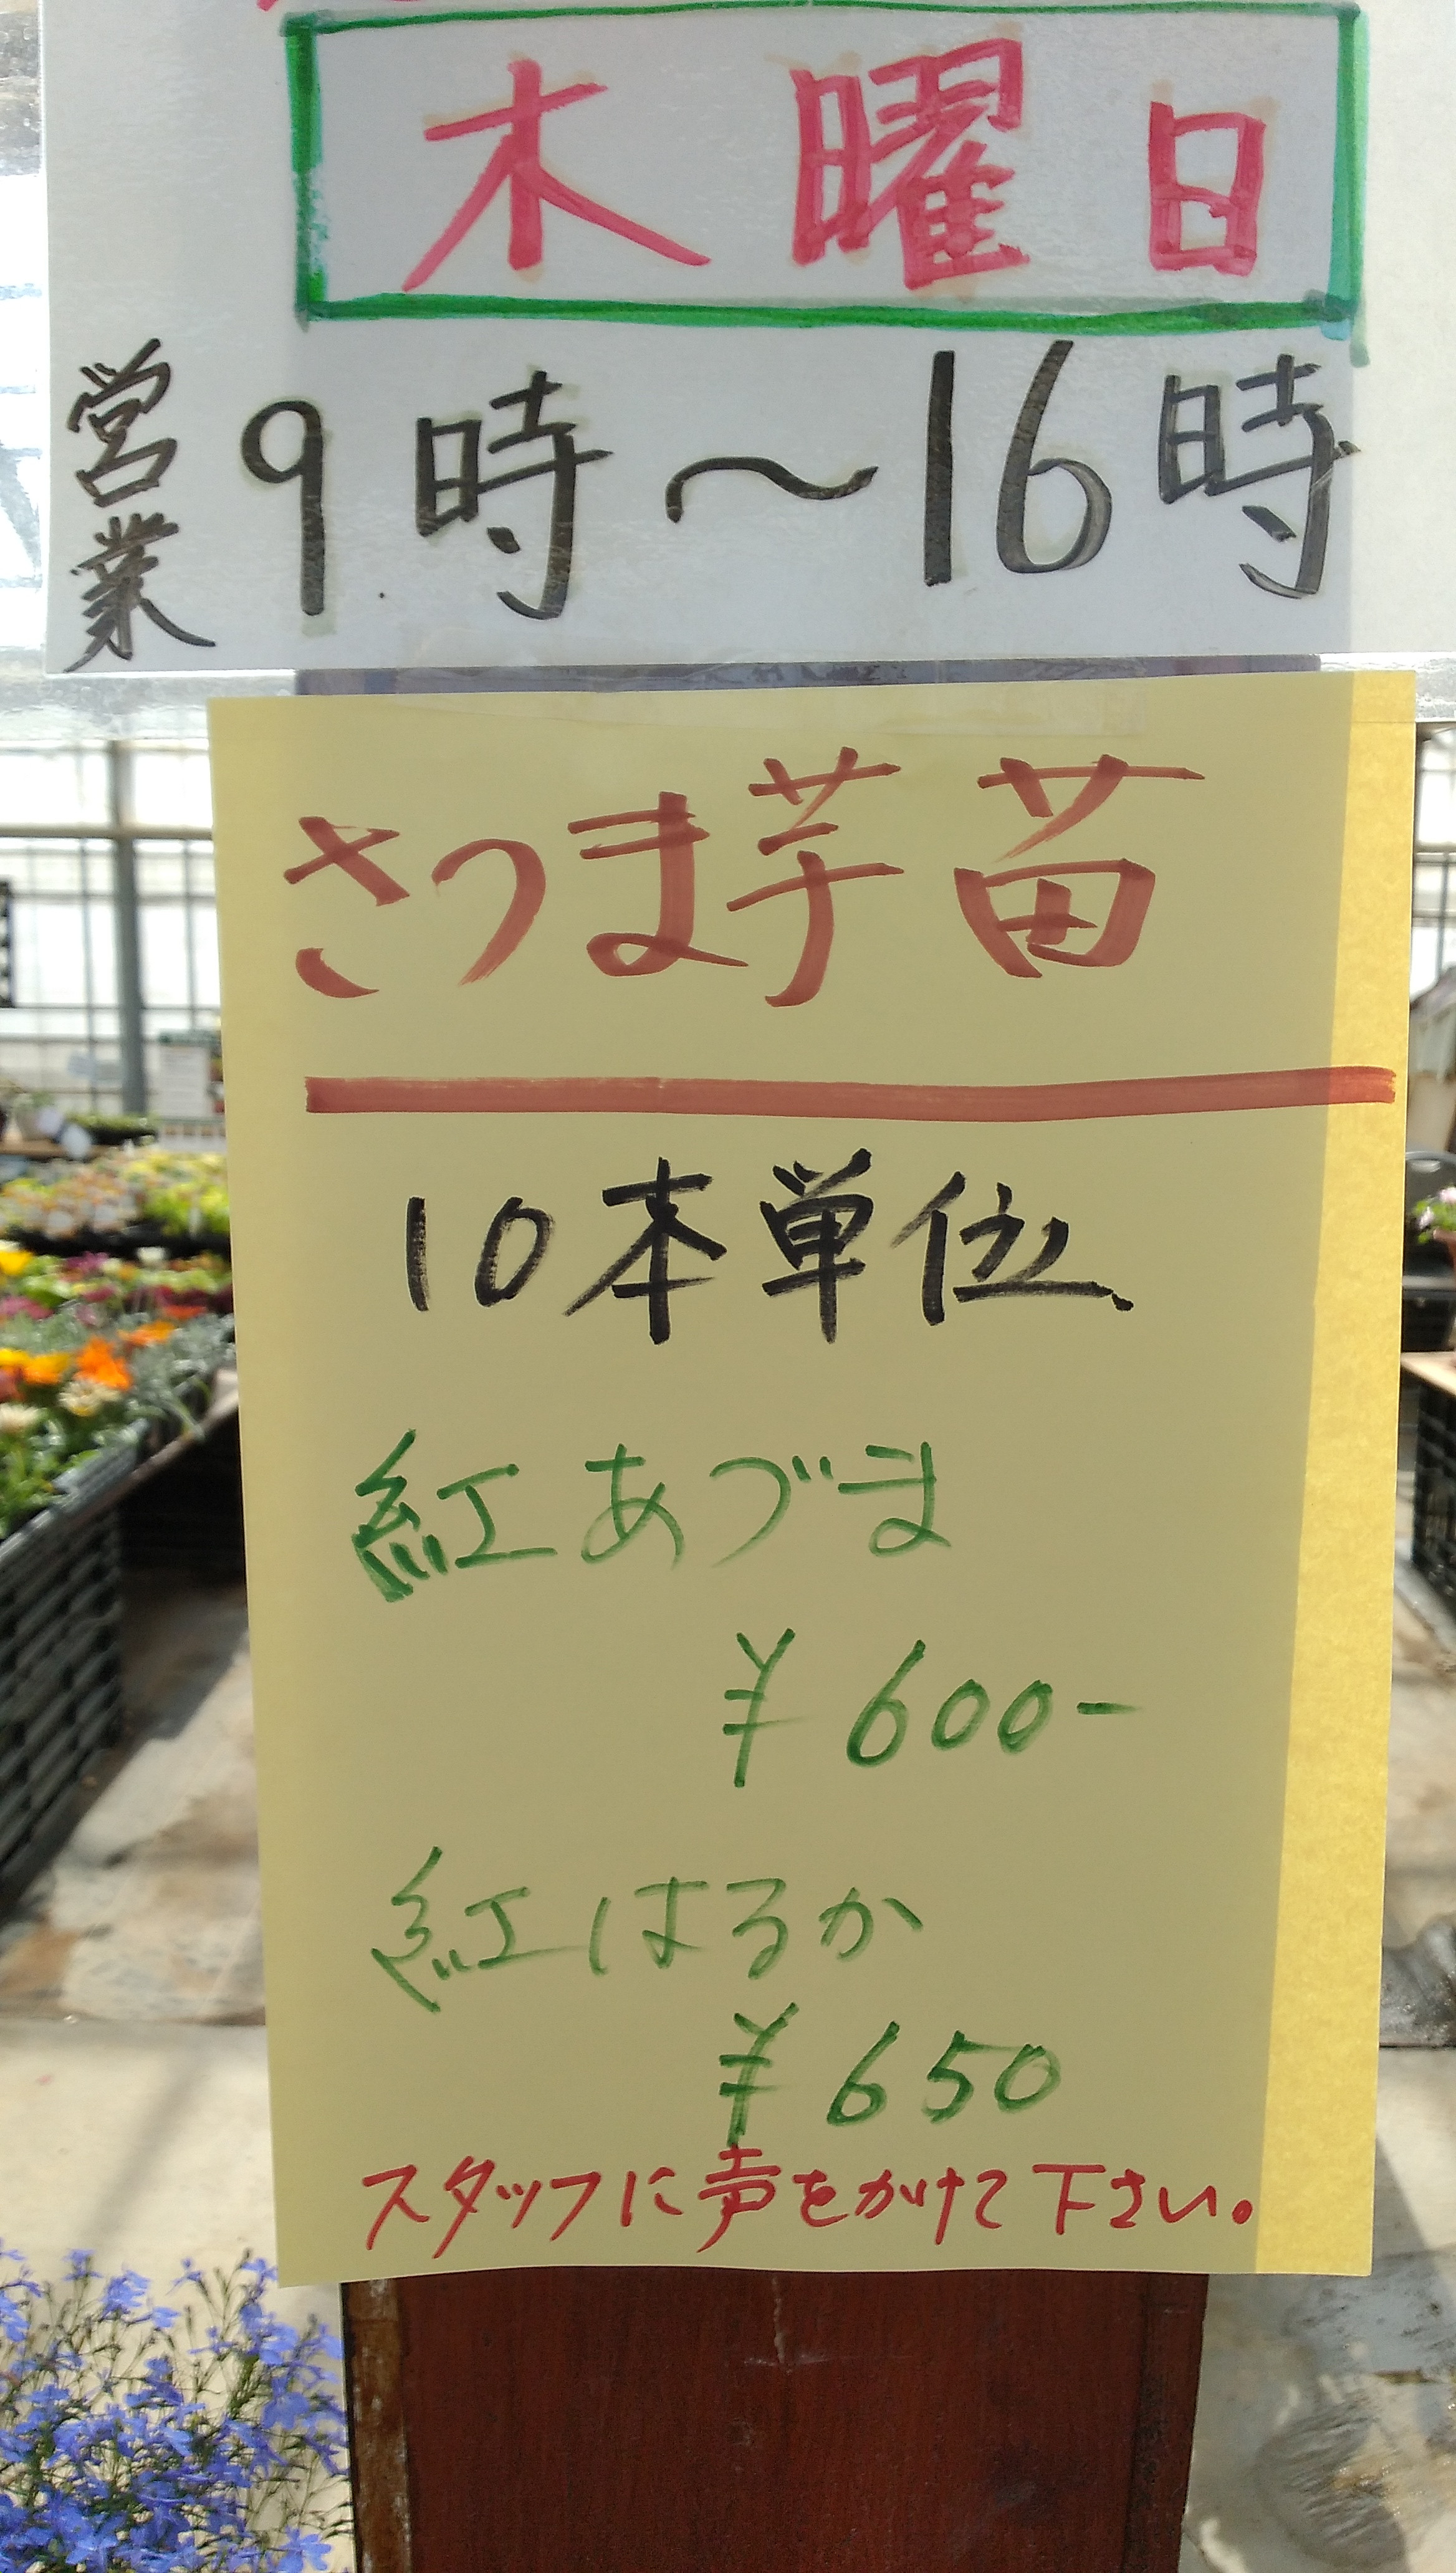 木曜日
営業 9時〜16時
さつま芋苗
10本単位、
紅あづま
¥600-
紅はるか
¥650
スタッフに声をかけて下さい。